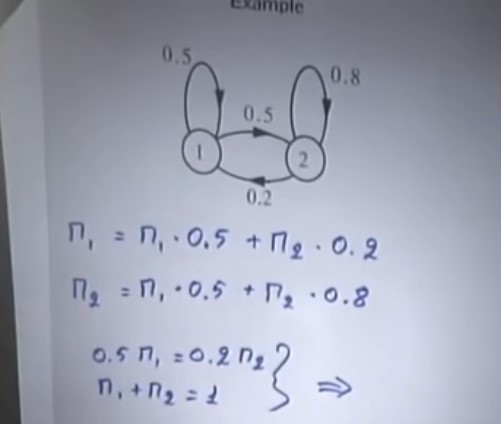 Example
0.5
0.8
0.5
1
2
0.2
π₁ = π₁ · 0.5 + π₂ · 0.2
π₂ = π₁ · 0.5 + π₂ · 0.8
0.5 π₁ = 0.2 π₂
π₁ + π₂ = 1 } ⇒